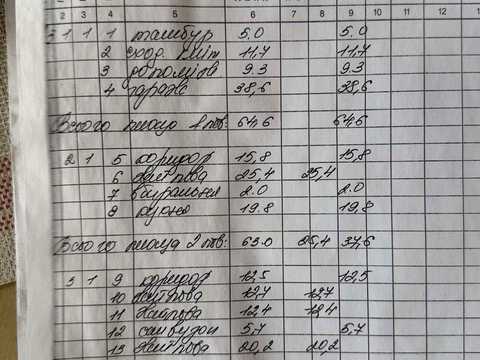 2 3 4 5 6 7 8 9 10 11 12 13
1 1 1 тамбур 5.0 5.0
2 сход. кліт 11,7 11,7
3 допоміжн 9.3 9.3
4 гараж 38,6 38,6
Всього площа 1 пов: 64,6 64,6
2 1 5 коридор 15,8 15,8
6 житлова 25,4 25,4
7 вбиральня 2.0 2.0
8 кухня 19.8 19,8
Всього площа 2 пов: 63.0 25,4 37,6
3 1 9 коридор 12,5 12,5
10 житлова 12,7 12,7
11 житлова 12,4 12,4
12 санвузол 5,7 5,7
13 житлова 20,2 20,2